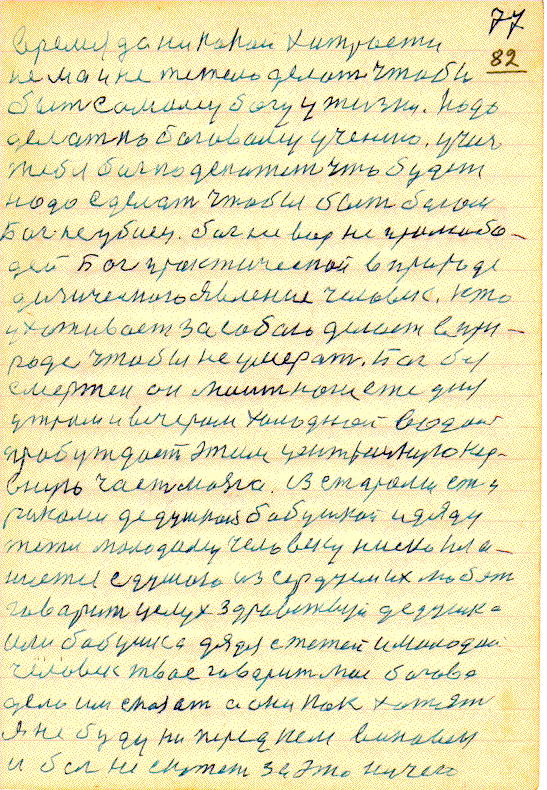 77
82
время да никакой хитрости
не ма и не тежело делат чтобы
быт самому богу у жизни. Надо
делат по боговому учению. учис
тебя бог поделитет что будет
надо сделат чтобы быт богом
Бог не убиец. бог не вор не прилюбо-
дей Бог практической в природе
физического явление человек. кто
ухаживает за собою делает в при-
роде чтобы не умерат. Бог без
смертен он моит ноги эти дни
утром и вечером холодной водой
пробуждает этим центральную нер-
вную част мозга. из старами ста
риками дедушкой бабушкой и дядю
тети молодому человеку ниско кла-
ниется с душою из сердцем их любет
говарит целух здравствуй дедушка
или бабушка дядя с тетей и молодой
человек твое говарит мое богово
дело им сказат а они как хотят
Я не буду ни перед кем виновен
и бог не скажет за это ничего